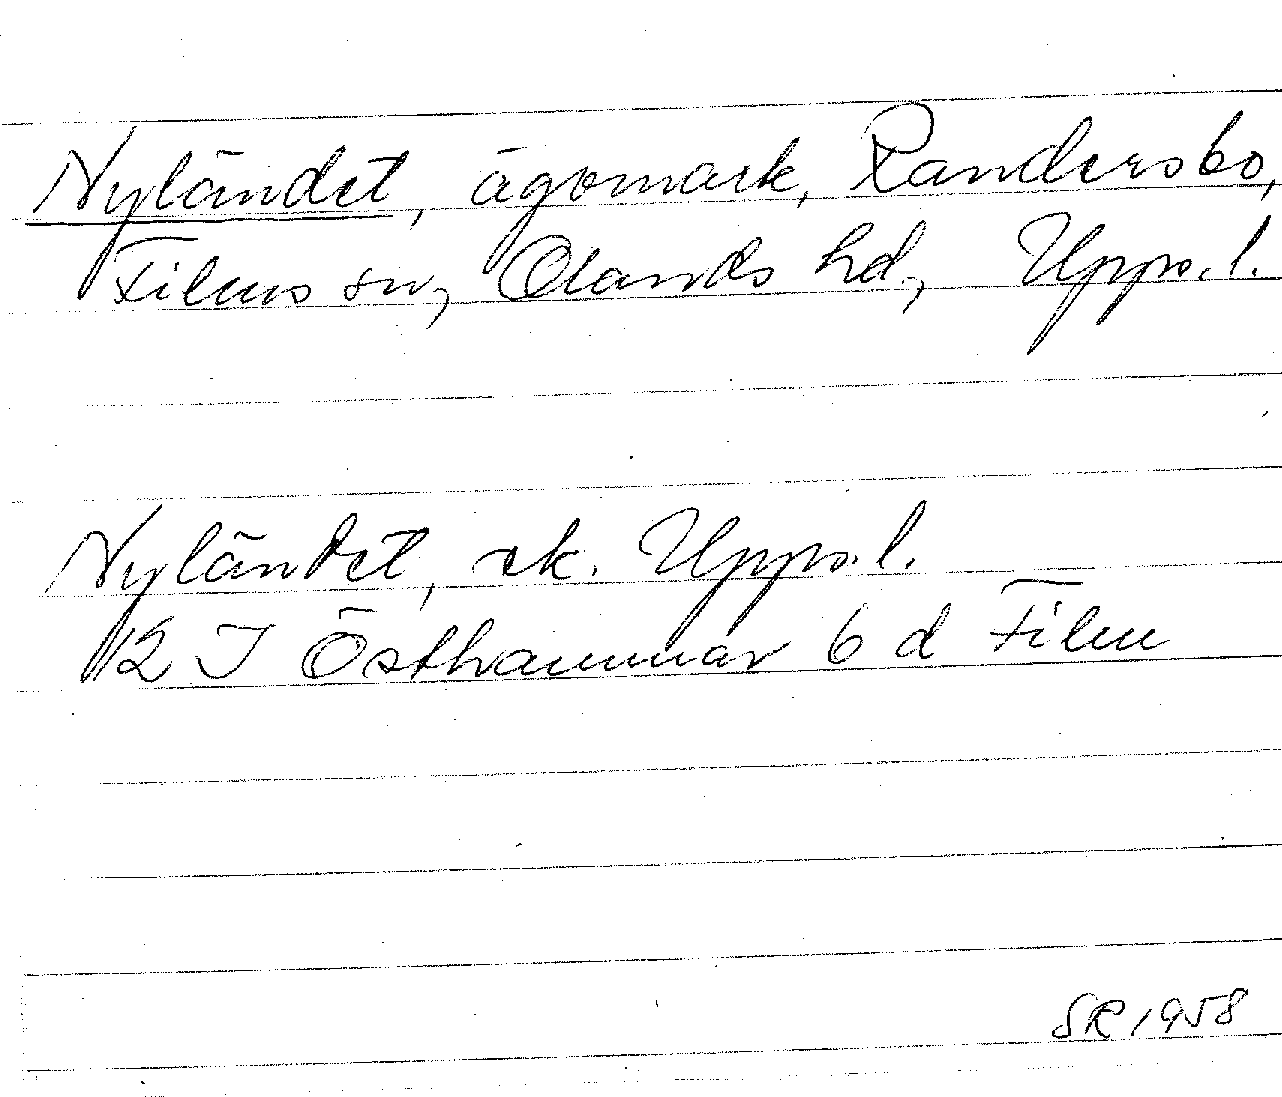 Nyländet, ägomark, Randersbo,
Films sn, Olands hd, Upps. l.
Nyländet, ek. Upps. l.
12 I Östhammar 6 d Film
SR 1958